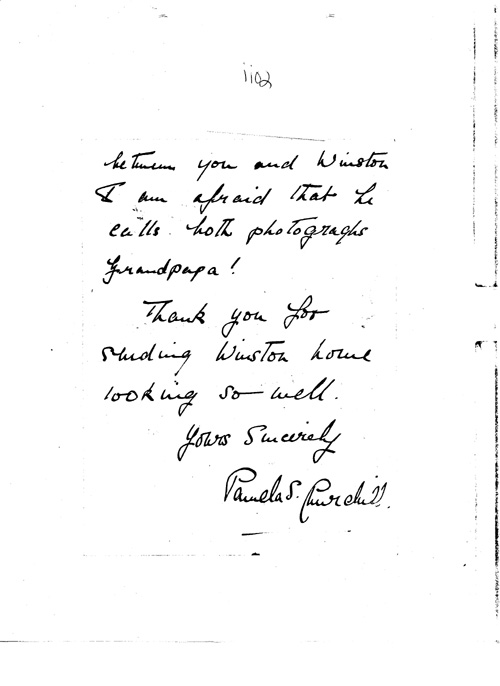 1102
between you and Winston
I am afraid that he
calls both photographs
Grandpapa!
Thank you for
sending Winston home
looking so well.
Yours Sincerely
Pamela S. Churchill.